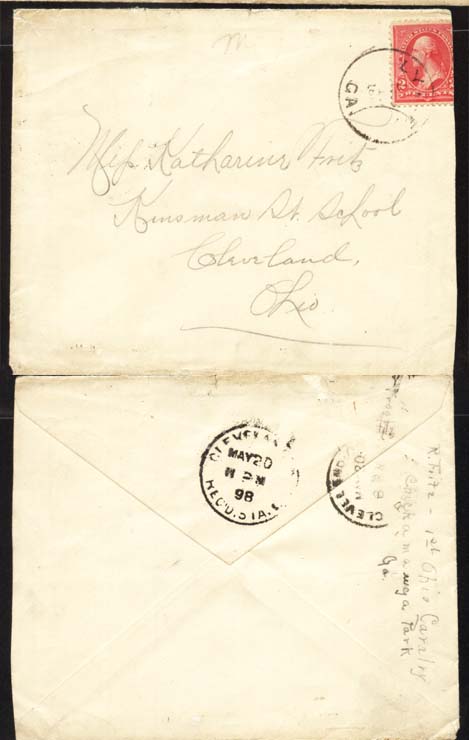 GA
2
Miss Katharine Fritz
Kinsman St. School
Cleveland,
Ohio
CLEVELAN
MAY20
2 PM
98
REC'D. STA.
CLEVE
R Fritz - 1st Ohio Cavalry
Chickamauga Park
Ga.